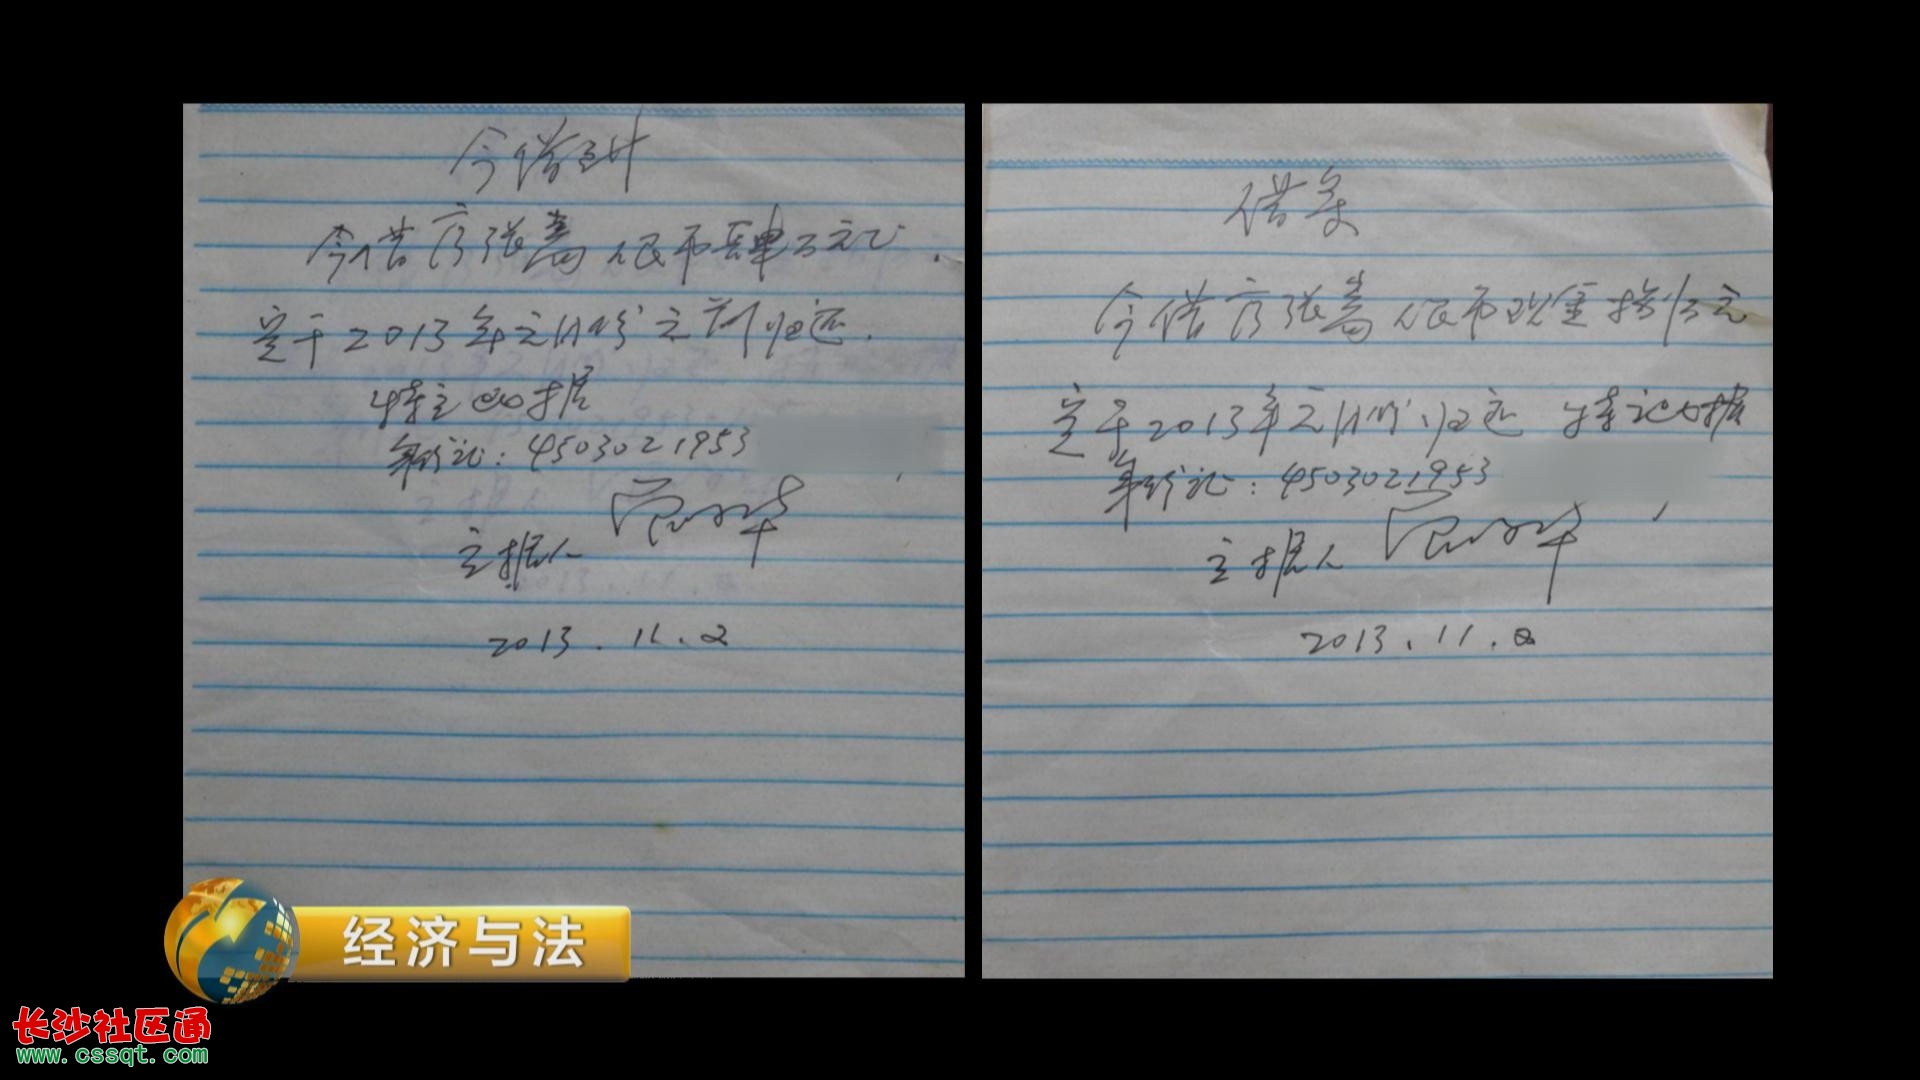 今借到
今借方张蒿人民币肆万元正.
定于2013年元月份之前归还.
特立此据
身份证：4503021953
立据人
2013.11.2
借条
今借方张蒿人民币现金拾万元
定于2013年元月份归还 特立此据
身份证：4503021953
立据人
2013.11.2
经济与法
长沙社区通
www.cssqt.com